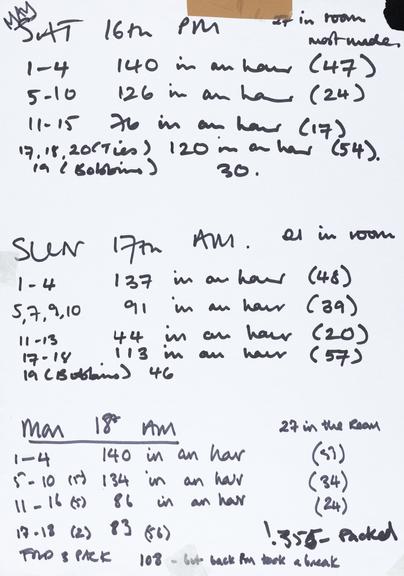 MAY
SAT 16th PM 27 in room
most made
1-4 140 in an hour (47)
5-10 126 in an hour (24)
11-15 76 in an hour (17)
17,18,20 (Ties) 120 in an hour (54).
19 (Bobbins) 30.
SUN 17th AM. 21 in room
1-4 137 in an hour (48)
5,7,9,10 91 in an hour (39)
11-13 44 in an hour (20)
17-18 113 in an hour (57)
19 (Bobbins) 46
Mon 18th AM 27 in the Room
1-4 140 in an hour
5-10 (5) 134 in an hour (34)
11-16 (5) 86 in an hour (24)
17-18 (2) 83 (56)
FOLD & PACK 108 - but back Pm took a break